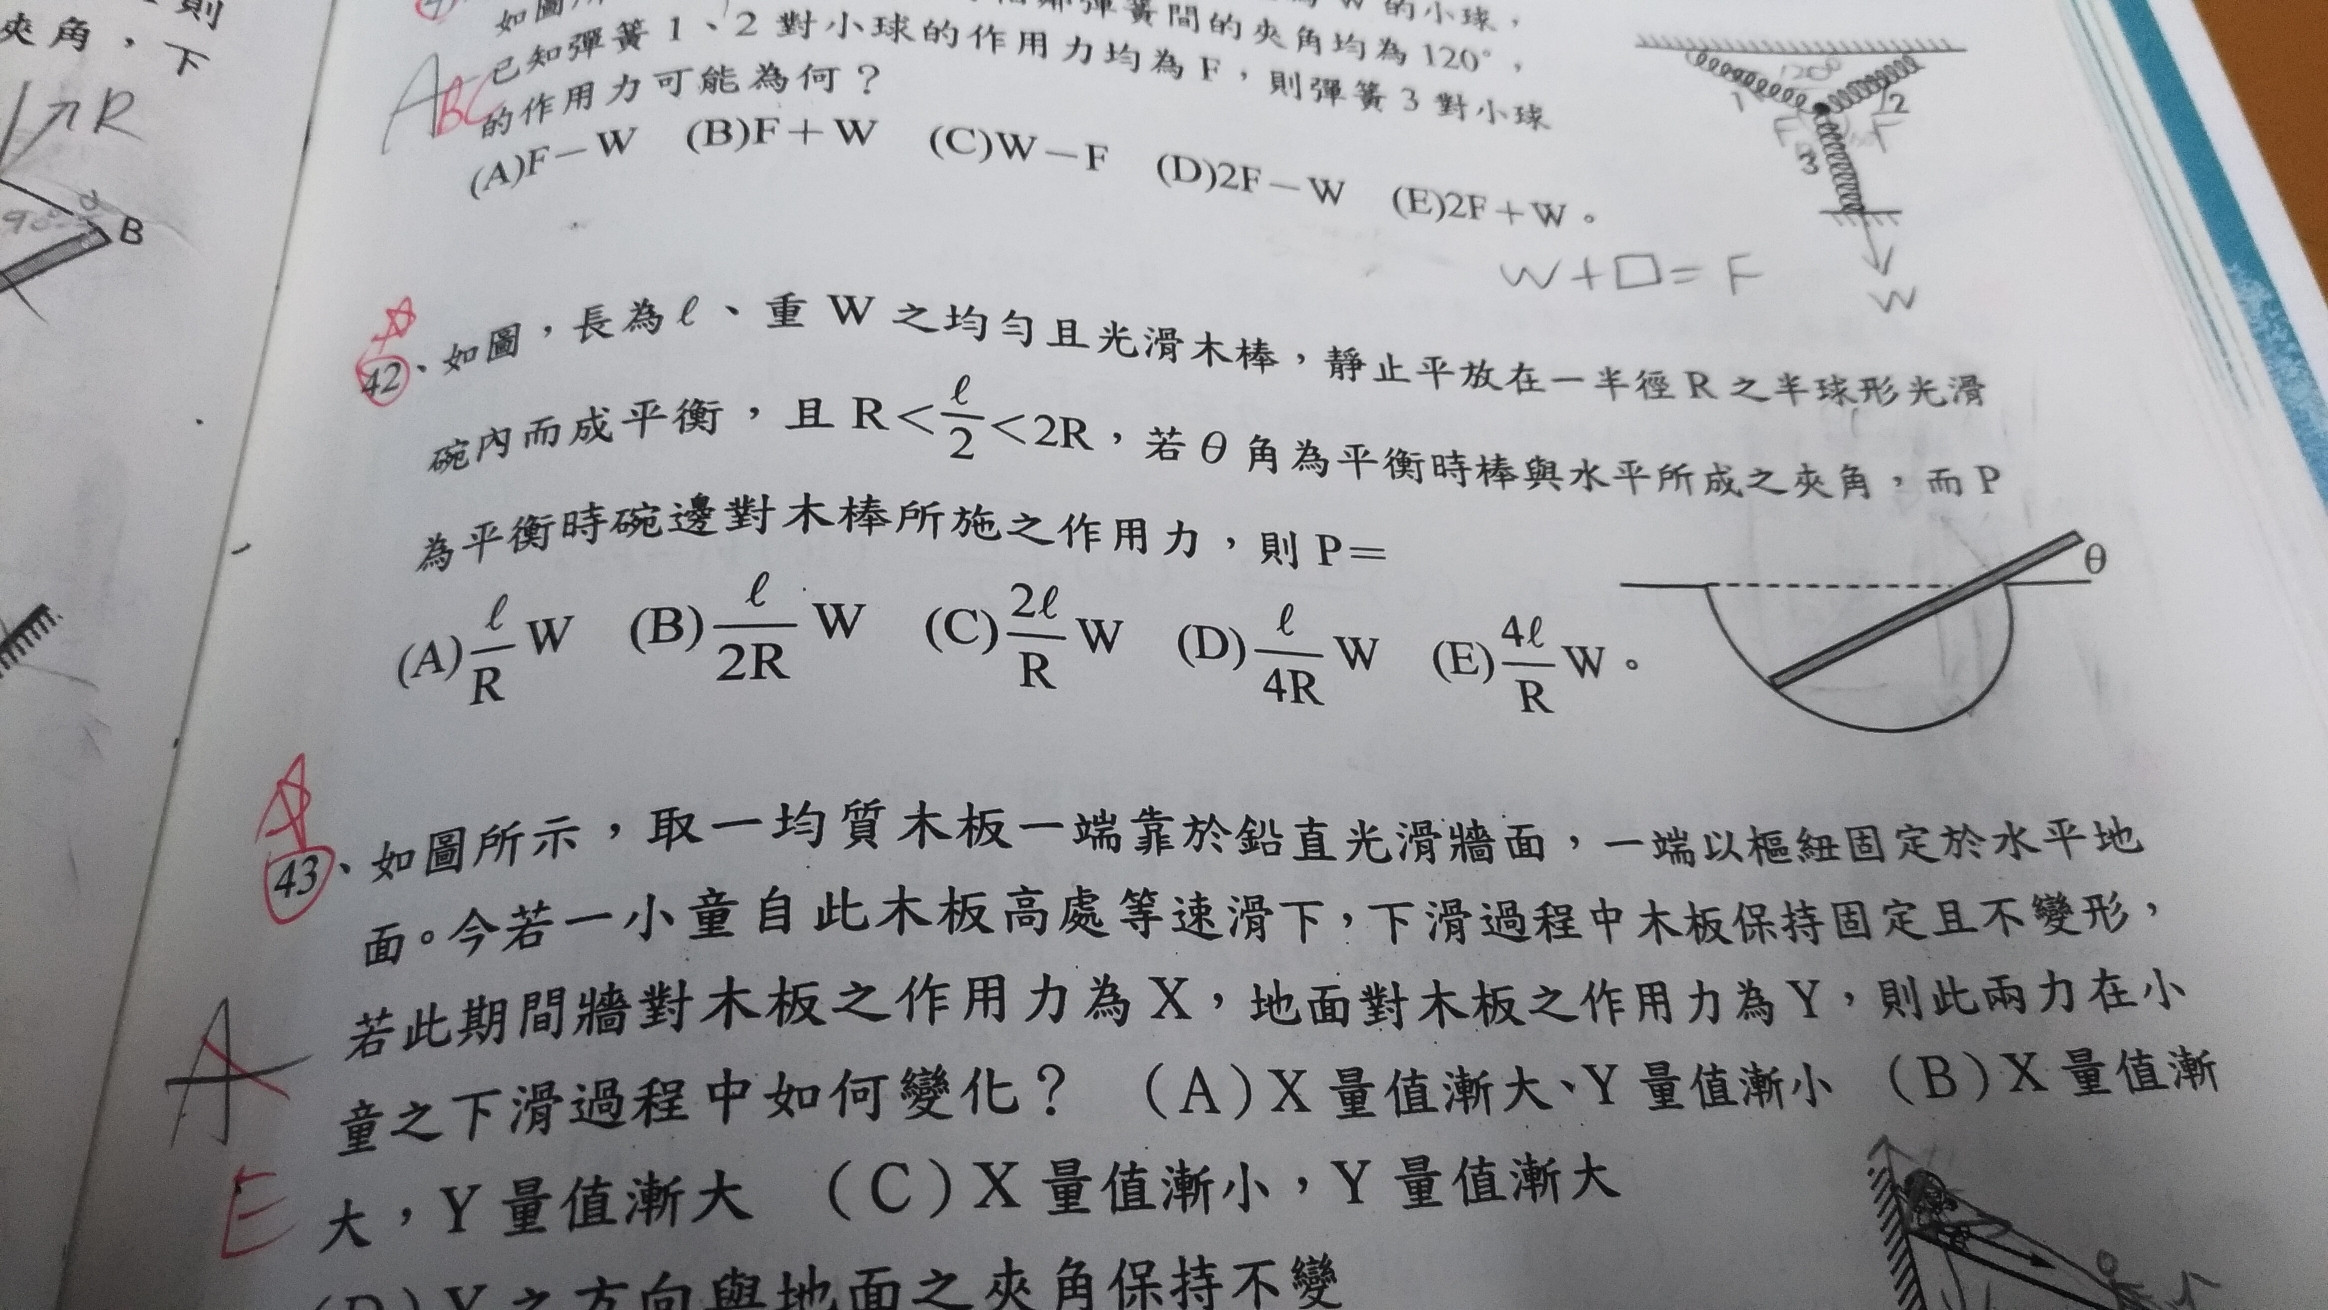 則
夾角，下
R
90°
α
B
的小球，
彈簧間的夾角均為120°，
已知彈簧1、2對小球的作用力均為F，則彈簧3對小球
的作用力可能為何？
A
BC
(A)F－W (B)F＋W (C)W－F (D)2F－W (E)2F＋W。
120°
1
2
F
F
3
W
W+□=F
42、如圖，長為ℓ、重W之均勻且光滑木棒，靜止平放在一半徑R之半球形光滑
碗內而成平衡，且R＜ℓ/2＜2R，若θ角為平衡時棒與水平所成之夾角，而P
為平衡時碗邊對木棒所施之作用力，則P＝
(A)ℓ/R W (B)ℓ/2R W (C)2ℓ/R W (D)ℓ/4R W (E)4ℓ/R W。
θ
43、如圖所示，取一均質木板一端靠於鉛直光滑牆面，一端以樞紐固定於水平地
面。今若一小童自此木板高處等速滑下，下滑過程中木板保持固定且不變形，
若此期間牆對木板之作用力為X，地面對木板之作用力為Y，則此兩力在小
童之下滑過程中如何變化？ (A)X量值漸大、Y量值漸小 (B)X量值漸
大，Y量值漸大 (C)X量值漸小，Y量值漸大
(D)Y之方向與地面之夾角保持不變
A
E